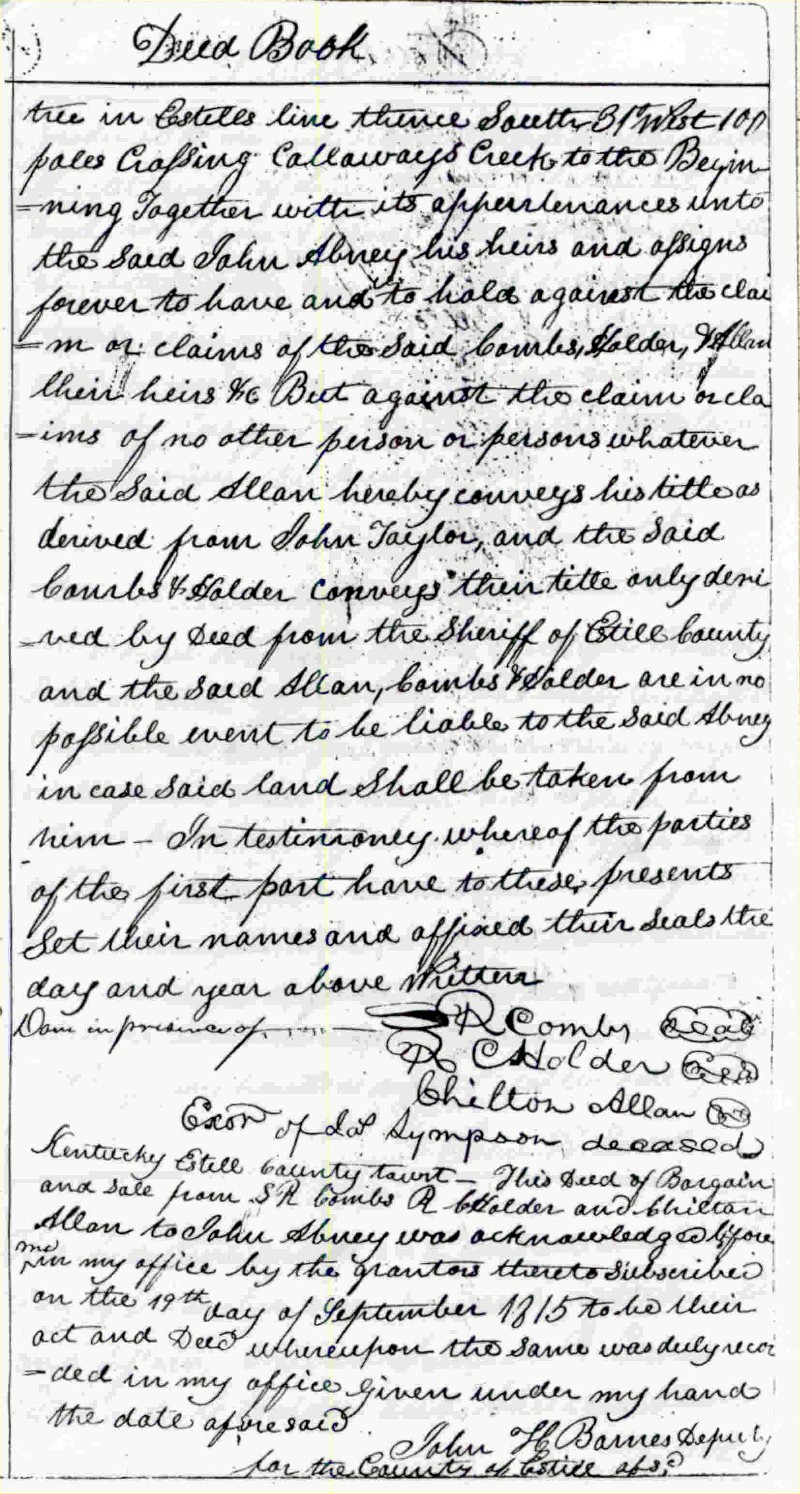 Deed Book
tree in Estells line thence South 31 West 100
poles Crossing Callaways Creek to the Begin
=ning Together with its appurtenances unto
the said John Abney his heirs and assigns
forever to have and to hold against the clai
=m or claims of the said Combs, Holder, & Allan
their heirs &c But against the claim or cla
=ims of no other person or persons whatever
the Said Allan hereby conveys his title as
derived from John Taylor, and the Said
Combs & Holder conveys their title only deri
=ved by Deed from the Sheriff of Estill County
and the said Allan, Combs & Holder are in no
possible event to be liable to the said Abney
in case said land Shall be taken from
him – In testimoney whereof the parties
of the first part have to these presents
Set their names and affixed their Seals the
day and year above Written
Done in presence of R Combs Seal
R C Holder Seal
Chilton Allan
Exor of Sympson deceased
Kentucky Estill County Court – This Deed of Bargain
and Sale from S R Combs R C Holder and Chilton
Allan to John Abney was acknowledged before
me in my office by the grantors thereto Subscribed
on the 19th day of September 1815 to be their
act and Deed whereupon the same was duly recor
=ded in my office Given under my hand
the date aforesaid
John H Barnes Deputy
for the County of Estill afsd